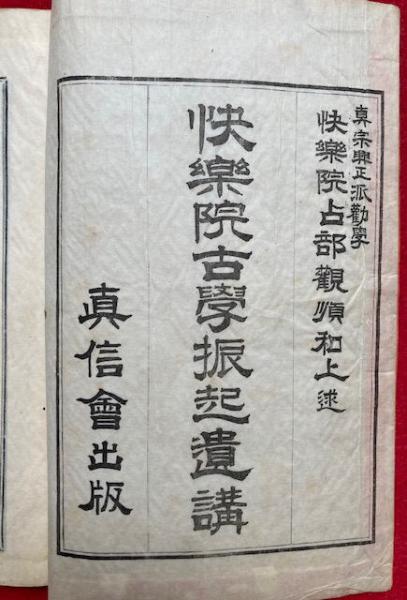 真宗興正派勸學
快樂院占部觀順和上述
快樂院古學振起遺講
真信會出版